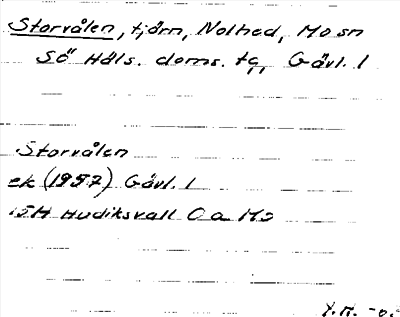 Storvålen, tjärn, Nolhed, Mo sn
Sö Häls. doms. tg, Gävl. l
Storvålen
ek (1957) Gävl. l
15H Hudiksvall 0a